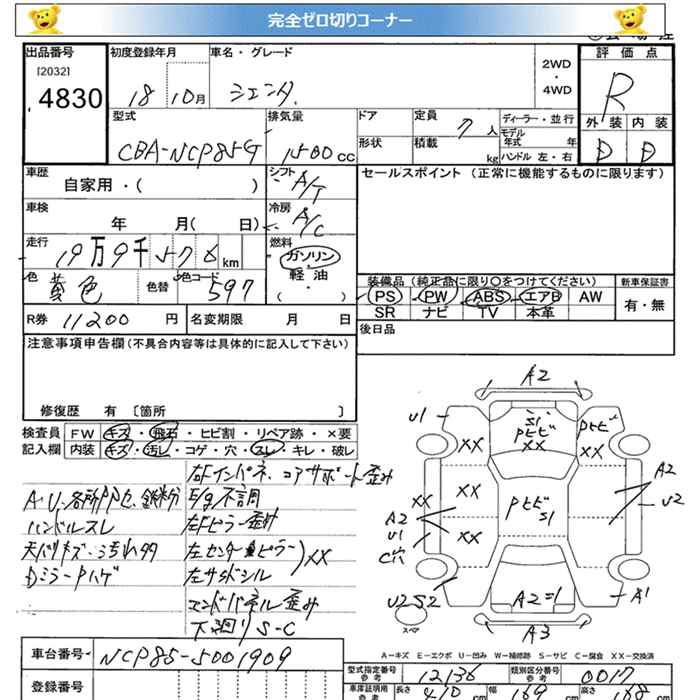 完全ゼロ切りコーナー
出品番号 初度登録年月 車名・グレード 評価点
[2032]
4830 18 10月 シエンタ 2WD・4WD R
型式 排気量 ドア 定員 7人 ディーラー・並行 外装 内装
CBA-NCP85G 1500cc 形状 積載 kg モデル年式 年 D D
ハンドル 左・右
車歴 シフト A/T セールスポイント (正常に機能するものに限ります)
自家用・( )
車検 年 月( 日) 冷房 A/C
走行 19万9千576km 燃料 ガソリン・軽油
( )
色 黄色 色替 色コード 597
装備品 (純正品に限り〇をつけてください) 新車保証書
PS PW ABS エアB AW 有・無
SR ナビ TV 本革
R券 11200円 名変期限 月 日 後日品
注意事項申告欄(不具合内容等は具体的に記入して下さい)
修復歴 有 〔箇所 〕
検査員 FW キズ・飛石・ヒビ割・リペア跡・×要
記入欄 内装 キズ・汚し・コゲ・穴・スレ・キレ・破レ
右Fインパネ、コアサポート歪み
A・U・各所
E/g不調
ハンドルスレ 左Fピラー歪み
天バリキズ・汚れ 左センターピラー XX
Dミラーハゲ 左サイドシル
エンドパネル歪み
下廻りS-C
A2
U1
S1
XX
XX
XX
XX
XX
XX
S1
A2
U1
C穴
A2
U2
U2S2
A2
A1
A3
スペア
A-キズ E-エクボ U-凹み W-補修跡 S-サビ C-腐食 XX-交換済
車台番号 NCP85-5001909
登録番号
型式指定番号 参考 12136 類別区分番号 参考 0017
車庫証明用 参考 長さ 410cm 幅 169cm 高さ 168cm